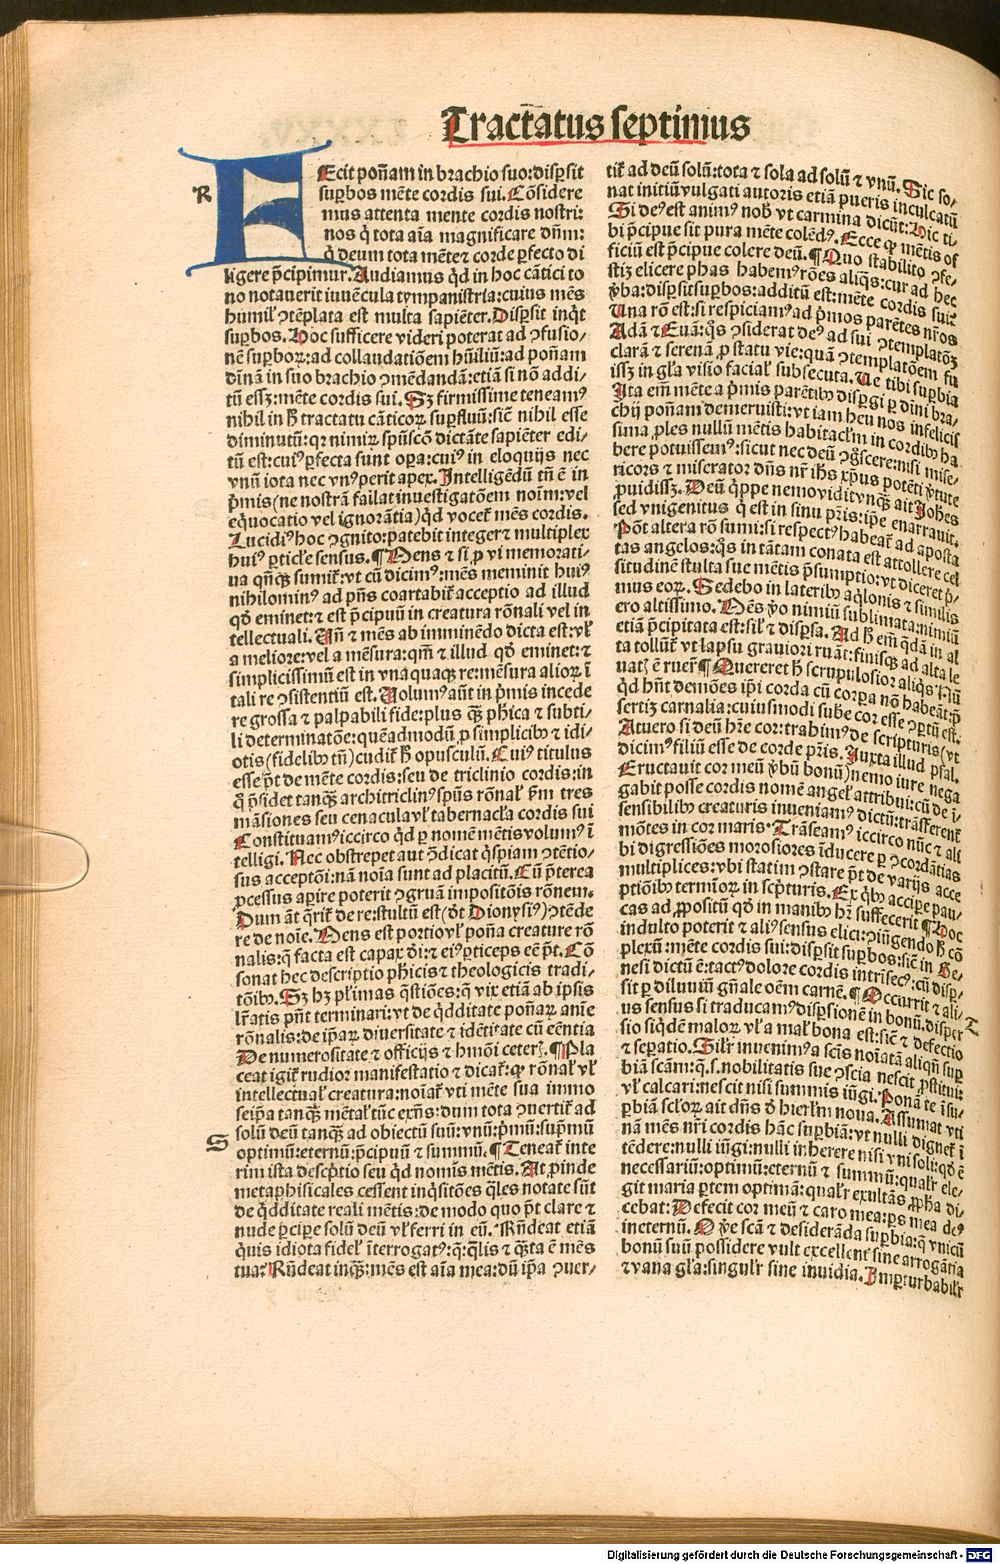 Tractatus septimus
R
FEcit poñam in brachio suo:disꝑsit
suꝑbos mēte cordis sui. Cōsidere
mus attenta mente cordis nostri:
nos q̇ tota aīa magnificare dñm:
q̇ deum tota mēte ⁊ corde ꝑfecto di
ligere p̄cipimur. Audiamus qd̓ in hoc cātici to
no notauerit iuuēcula tympanistria: cuius mēs
humil' ꝯtēplata est multa sapiēter. Disꝑsit inq̇t
suꝑbos. Hoc sufficere videri poterat ad ꝯfusio⸗
nē suꝑboꝝ: ad collaudatiōem hūiliū: ad poñam
dīnā in suo brachio ꝯmēdandā: etiā si nō addi⸗
tū essꝫ: mēte cordis sui. Sꝫ firmissime teneamꝰ
nihil in h̓ tractatu cāticoꝝ suꝑfluū: sic̄ nihil esse
diminutū: qꝛ nimiꝝ spūscō dictāte sapiēter edi⸗
tū est: cuiꝰ ꝑfecta sunt oꝑa: cuiꝰ in eloquijs nec
vnū iota nec vnꝰ ꝑerit apex. Intelligēdū tñ ē in
p̄mis (ne nostrā fallat inuestigatōem noīm: vel
eq̇uocatio vel ignorātia) qd̓ vocet̄ mēs cordis.
Lucidiꝰ hoc ꝯgnito: patebit integer ⁊ multiplex
huiꝰ ꝑticl'e sensus. ¶ Mens ⁊ si ꝓ vi memorati⸗
ua qñqꝫ sumit̄: vt cū dicimꝰ: mēs meminit huiꝰ
nihilominꝰ ad p̄ns coartabit̄ acceptio ad illud
qd̓ eminet: ⁊ est p̄cipuū in creatura rōnali vel in
tellectuali. Vñ ⁊ mēs ab imminēdo dicta est: vl'
a meliore: vel a mēsura: qm̄ ⁊ illud qd̓ eminet: ⁊
simplicissimū est in vnaquaqꝫ re: mēsura alioꝝ ī
tali re ꝯsistentiū est. Volumꝰ aūt in p̄mis incede
re grossa ⁊ palpabili fide: plus qꝫ̄ phīca ⁊ subti⸗
li determinatōe: quēadmodū ꝓ simplicibꝰ ⁊ idi⸗
otis (fidelibꝰ tñ) cudit̄ h̓ opusculū. Cuiꝰ titulus
esse p̄t de mēte cordis: seu de triclinio cordis: in
q̇ p̄sidet tanqꝫ̄ architriclinꝰ spūs rōnal' fm tres
māsiones seu cenacula vl' tabernacl'a cordis sui
Constituamꝰ iccirco qd̓ ꝑ nomē mētis volumꝰ ī
telligi. Nec obstrepet aut ꝯ̄dicat q̇spiam ꝯtētio⸗
sus acceptōi: nā noīa sunt ad placitū. Cū p̄terea
ꝓcessus aꝑire poterit ꝯgruā impositōis rōnem.
Dum āt q̄rit̄ de re: stultū est (vt Dionysiꝰ) ꝯtēde
re de noīe. Mens est portio vl' poña creature rō
nalis: q̄ facta est capax d̓i: ⁊ eiꝰ ꝑticeps eē p̄t. Cō
sonat hec descriptio phīcis ⁊ theologicis tradi⸗
tōibꝰ. Sꝫ hꝫ pl'imas q̄stiōes: q̄ vix etiā ab ipsis
lr̄atis pñt terminari: vt de q̇dditate poñaꝝ anīe
rōnalis: de ip̄aꝝ diuersitate ⁊ idētitate cū eēntia
De numerositate ⁊ officijs ⁊ hmōi ceterꝭ. ¶ Pla
ceat igit̄ rudior manifestatio ⁊ dicat̄: qꝙ rōnal' vl'
intellectual' creatura: noīat̄ vti mēte sua immo
seip̄a tanqꝫ̄ mētal' tūc exñs: dum tota ꝯuertit̄ ad
solū deū tanqꝫ̄ ad obiectū suū: vnū: p̄mū: sup̄mū
S
optimū: eternū: p̄cipuū ⁊ summū. ¶ Teneat̄ inte
rim ista descp̄tio seu qd̓ nomīs mētis. At ꝓinde
metaphisicales cessent inq̇sitōes q̄les notate sūt
de q̇dditate reali mētis: de modo quo p̄t clare ⁊
nude ꝑcipe solū deū vl' ferri in eū. Rñdeat etiā
q̇uis idiota fidel' īterrogatꝰ: q̄: q̄lis ⁊ qꝫ̄ta ē mēs
tua: Rñdeat inqꝫ̄: mēs est aīa mea: dū ip̄a ꝯuer⸗
tit̄ ad deū solū: tota ⁊ sola ad solū ⁊ vnū. Sic so⸗
nat initiū vulgati autoris etiā pueris inculcatū
Si deꝰ est animꝰ nob̓ vt carmina dicūt: Hic ti⸗
bi p̄cipue sit pura mēte colēdꝰ. Ecce qꝙ mētis of
ficiū est p̄cipue colere deū. ¶ Quo stabilito ꝯfe⸗
stiꝫ elicere phas habemꝰ rōes aliq̇s: cur ad hec
v̓ba: disꝑsit suꝑbos: additū est: mēte cordis sui:
Una rō est: si respiciamꝰ ad p̄mos parētes nr̄os
Adā ⁊ Euā: q̇s ꝯsiderat deꝰ ad sui ꝯtemplatōꝫ
clarā ⁊ serenā ꝓ statu vie: quā ꝯtemplatōem fu
issꝫ in gl'a visio facial' subsecuta. Ve tibi suꝑbia
Ita em̄ mēte a p̄mis parētibꝰ disꝑgi ꝑ dīni bra⸗
chij poñam demeruisti: vt iam heu nos infelicis
sima ꝓles nullū mētis habitacl'm in cordibꝰ ha
bere potuissemꝰ: sicut nec deū ꝯg̓scere: nisi mise⸗
ricors ⁊ miserator dñs nr̄ ihs xp̄us potēti v̓tute
ꝓuidissꝫ. Deū q̇ppe nemo vidit vnqꝫ̄ ait Joh̄es
sed vnigenitus q̇ est in sinu pr̄is: ip̄e enarrauit.
Pōt altera rō sumi: si respectꝰ habeat̄ ad aposta
tas angelos: q̇s in tātam conata est attollere cel
situdinē stulta sue mētis p̄sumptio: vt diceret p̄⸗
mus eoꝝ. Sedebo in lateribꝰ aq̇lonis ⁊ similis
ero altissimo. Mēs v̓o nimiū sublimata: nimiū
etiā p̄cipitata est: sil' ⁊ disꝑsa. Ad h̓ em̄ q̄dā in al
ta tollūt̄ vt lapsu grauiori ruāt: finisqꝫ ad alta le
uatꝭ ē ruer̄ ¶ Quereret h̓ scrupulosior aliq̇s
qd̓ hñt demōes ip̄i corda cū corꝑa nō habeāt: p̄
sertiꝫ carnalia: cuiusmodi sube cor esse ꝯꝑtū est.
At vero si deū hr̄e cor: trahimꝰ de scripturis (vt
dicimꝰ filiū esse de corde pr̄is. Juxta illud psal.
Eructauit cor meū v̓bū bonū) nemo iure nega
gabit posse cordis nomē angel' attribui: cū de ī⸗
sensibilibꝰ creaturis inueniamꝰ dictū: trāsferent̄
mōtes in cor maris. Trāseamꝰ iccirco nūc ⁊ ali
bi digressiōes morosiores īducere ꝑ ꝯcordātias
multiplices: vbi statim ꝯstare p̄t de varijs acce
ptiōibꝰ termīoꝝ in scp̄turis. Ex q̇bꝰ accipe pau⸗
cas ad ꝓpositū qd̓ in manibꝰ hꝫ suffecerit ¶ Hoc
indulto poterit ⁊ aliꝰ sensus elici: ꝯiūgendo h̓ cō
plexū: mēte cordis sui: disꝑsit suꝑbos: sic̄ in Ge⸗
nesi dictū ē: tactꝰ dolore cordis intrīsecꝰ: cū disꝑ⸗
sit ꝑ diluuiū gñale oēm carnē. ¶ Occurrit ⁊ ali⸗
T
us sensus si traducamꝰ disꝑsionē in bonū. disper
sio siq̇dē maloꝝ vl' a mal' bona est: sic̄ ⁊ defectio
⁊ seꝑatio. Sil'r inuenimꝰ a scīs noīatā aliqñ suꝑ
biā scām: q̄. s. nobilitatis sue ꝯscia nescit ꝓstitui:
vl' calcari: nescit nisi summis iūgi. Ponā te ī su⸗
ꝑbiā scl'oꝝ ait dñs d̓ hierl'm noua. Assumat vti
nā mēs nr̄i cordis hāc suꝑbiā: vt nulli dignet̄ ī
tēdere: nulli iūgi: nulli inherere nisi vni soli: qd̓ ē
necessariū: optimū: eternū ⁊ summū: qual'r ele⸗
git maria ꝑtem optimā: qual'r exultās ꝓpha di⸗
cebat: Defecit cor meū ⁊ caro mea: ps mea deꝰ
in eternū. O v̓e scā ⁊ desiderāda suꝑbia: q̄ vnicū
bonū suū possidere vult excellent̄ sine arrogātia
⁊ vana gl'a: singul'r sine inuidia. Imꝑturbabil'r
Digitalisierung gefördert durch die Deutsche Forschungsgemeinschaft - DFG